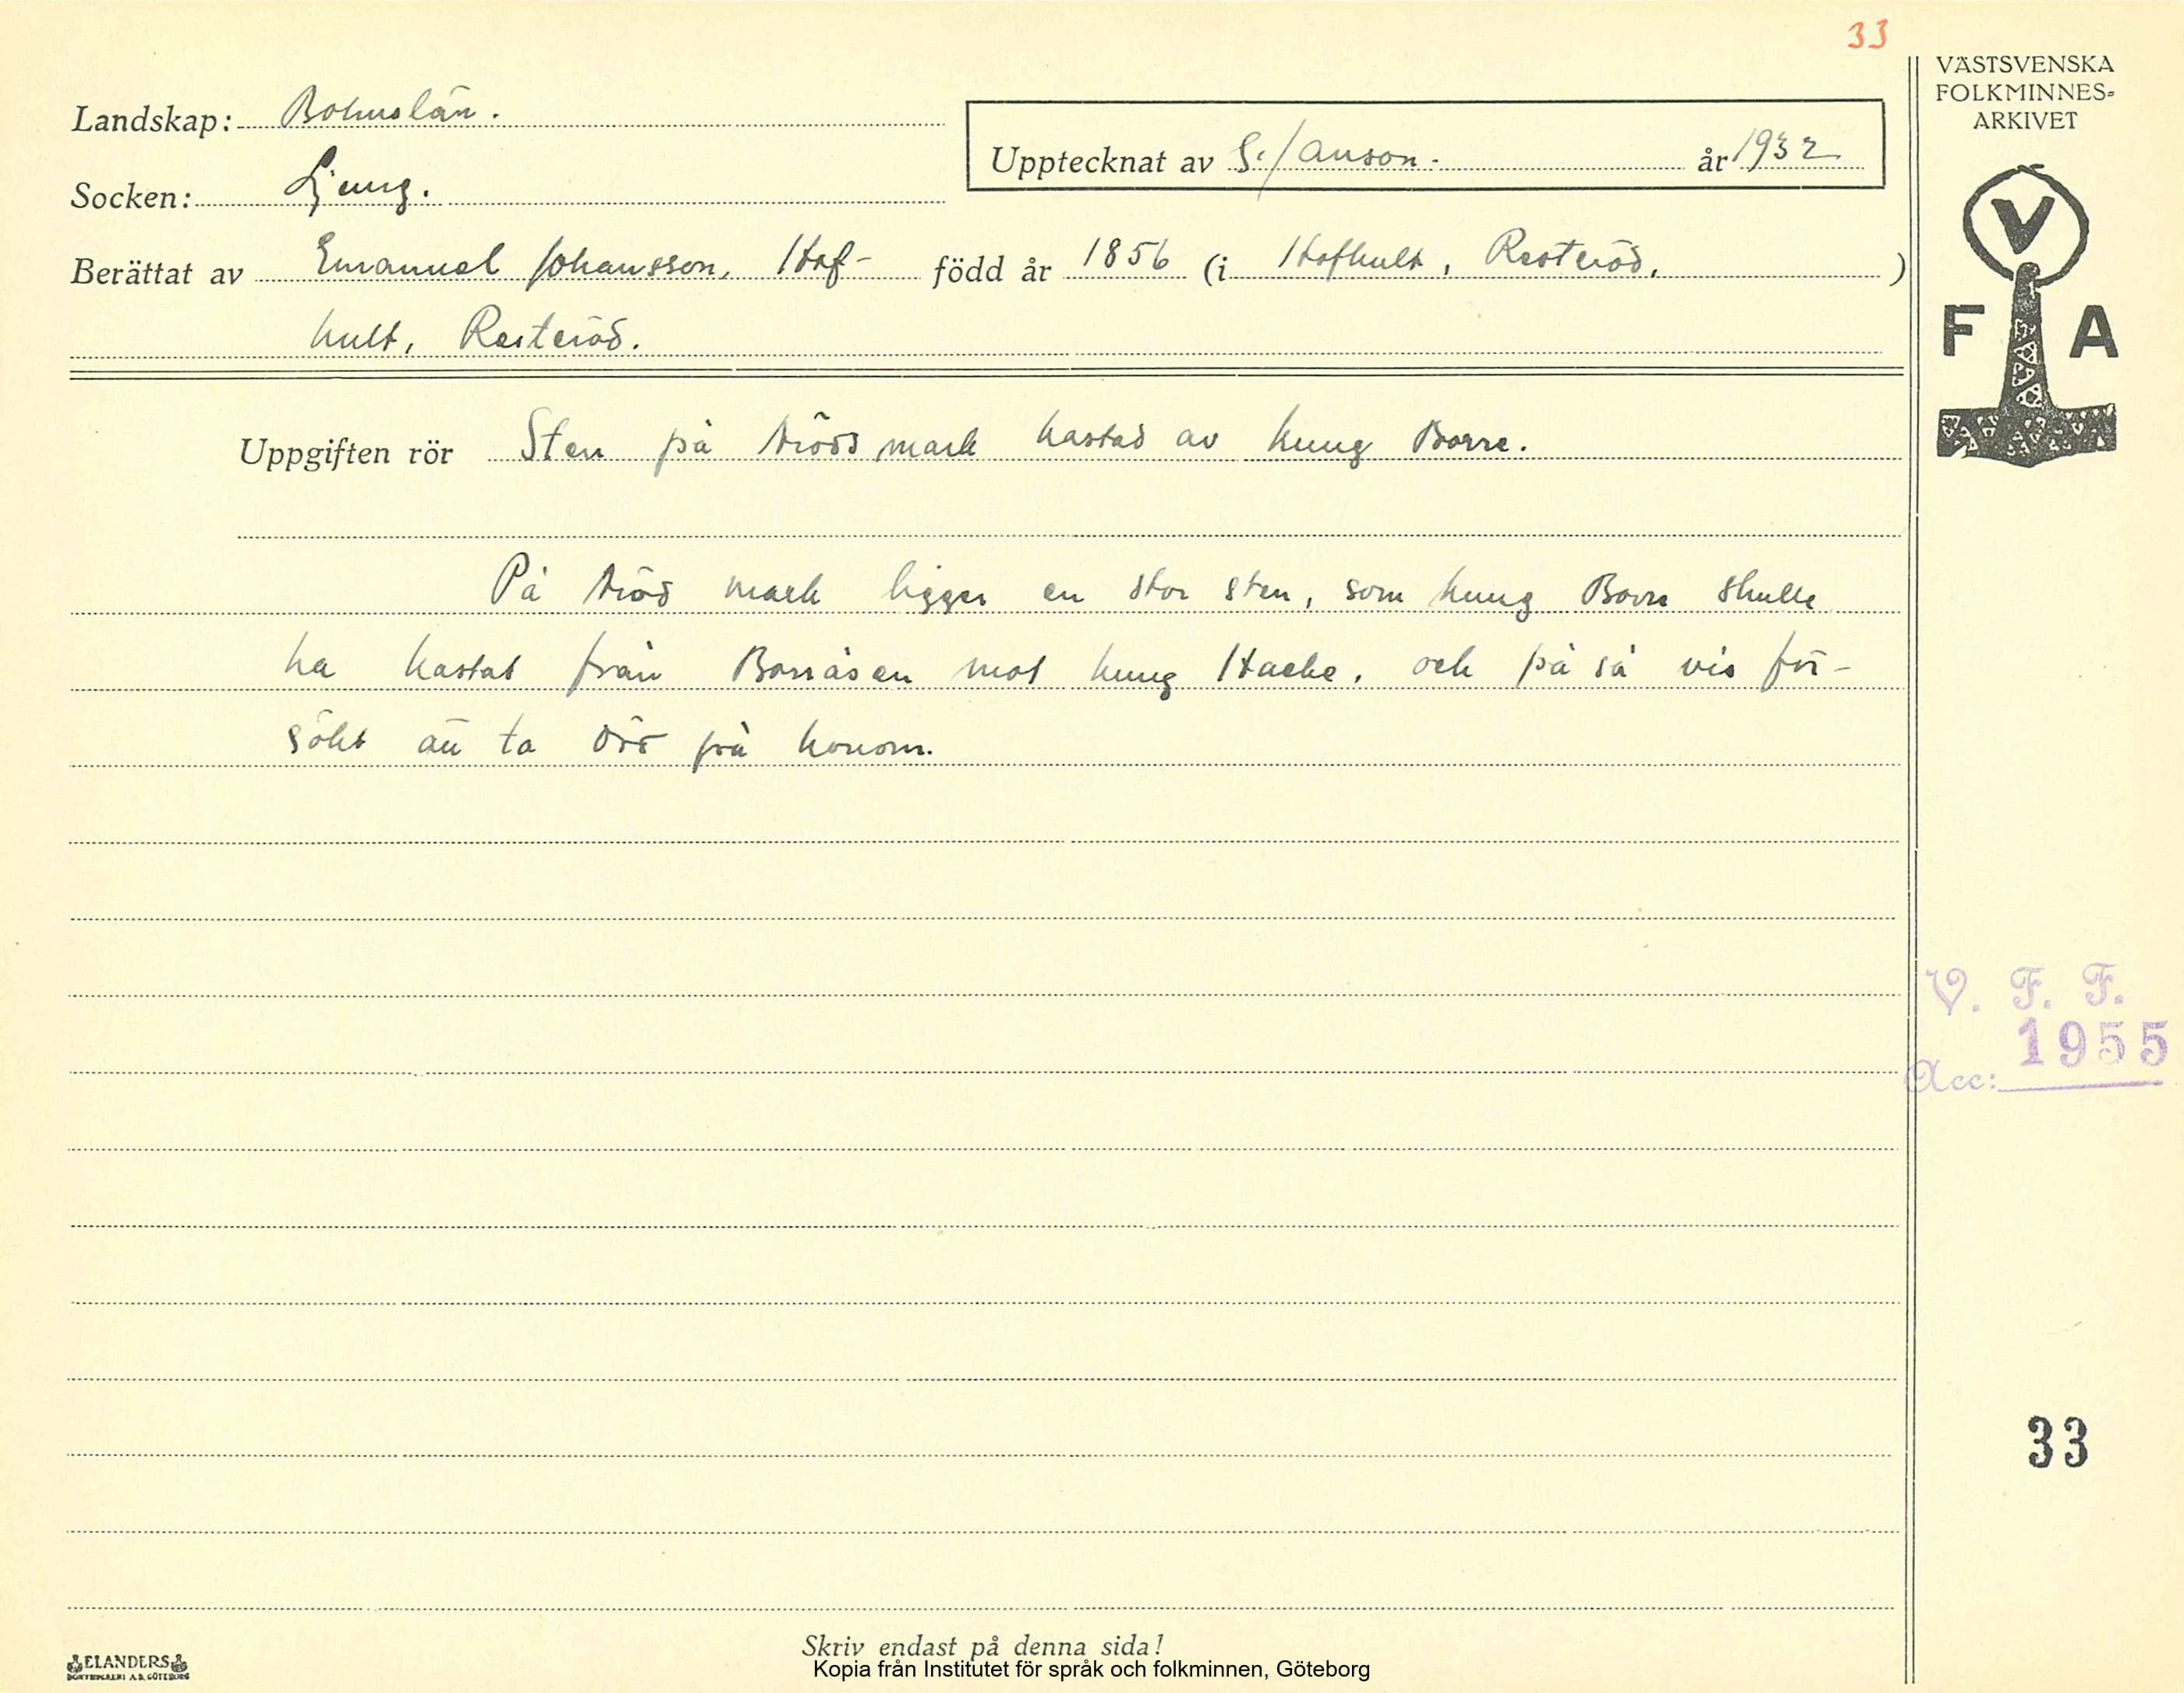 33
VÄSTSVENSKA
FOLKMINNES-
ARKIVET
Landskap: Bohuslän.
Upptecknat av S. Janson. år 1932
Socken: Ljung.
Berättat av Emanuel Johansson, Hof- född år 1856 (i Hofhult, Resteröd. )
hult, Resteröd.
V
F A
Uppgiften rör Sten på mark kastad av kung Borre.
På mark ligger en stor sten, som kung Borre skulle
ha kastat från Borråsen mot kung Hacke, och på så vis för-
sökt att ta död på honom.
V. F. F.
1955
Acc:
33
Skriv endast på denna sida!
ELANDERS
BOKTRYCKERI A.B. GÖTEBORG
Kopia från Institutet för språk och folkminnen, Göteborg